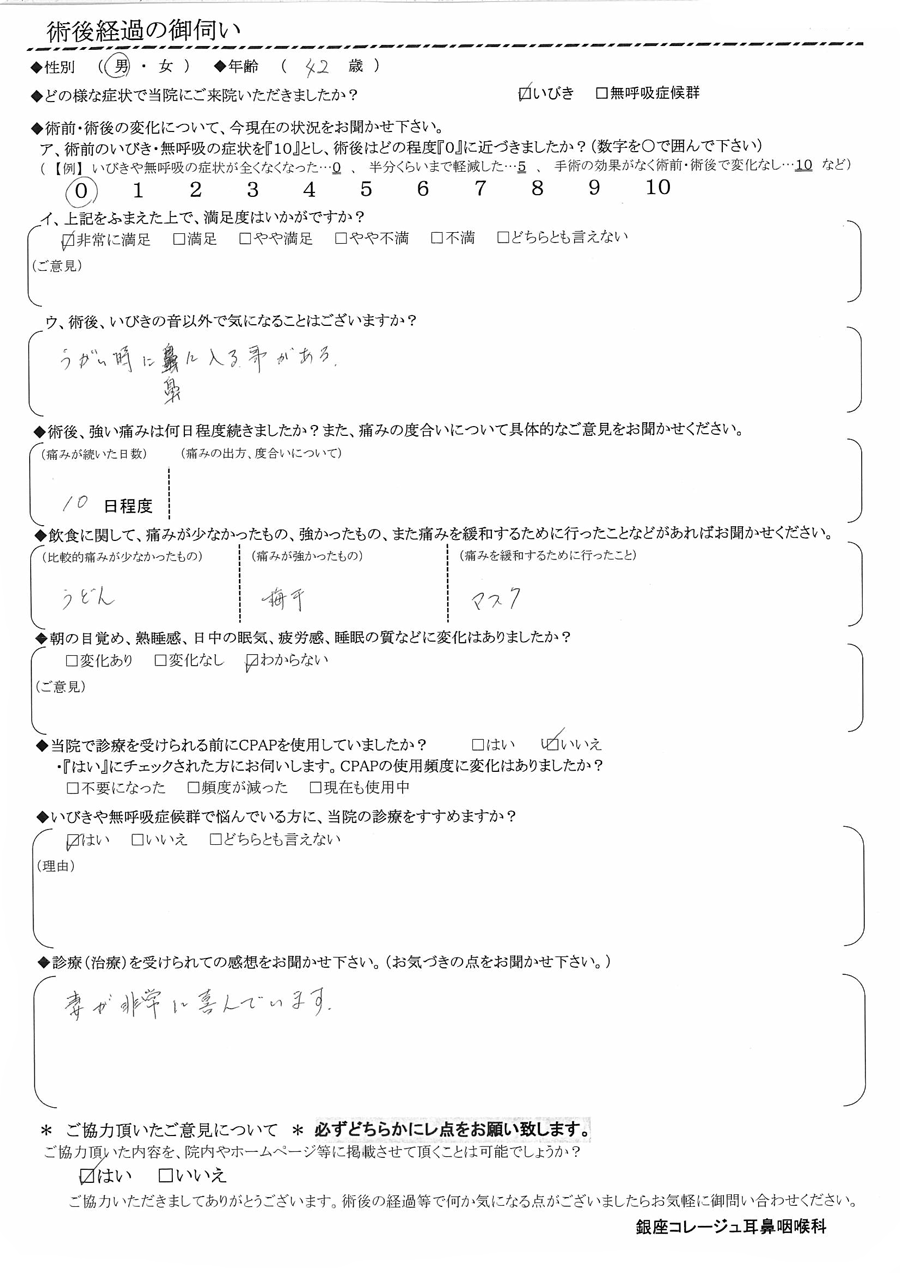 術後経過の御伺い
◆性別　（ 男 ・ 女 ）　◆年齢　（　42　歳　）
◆どの様な症状で当院にご来院いただきましたか？　☑いびき　□無呼吸症候群
◆術前・術後の変化について、今現在の状況をお聞かせ下さい。
ア、術前のいびき・無呼吸の症状を『10』とし、術後はどの程度『0』に近づきましたか？（数字を〇で囲んで下さい）
（ 【例】 いびきや無呼吸の症状が全くなくなった…0　、　半分くらいまで軽減した…5　、　手術の効果がなく術前・術後で変化なし…10　など）
0　1　2　3　4　5　6　7　8　9　10
イ、上記をふまえた上で、満足度はいかがですか？
☑非常に満足　□満足　□やや満足　□やや不満　□不満　□どちらとも言えない
（ご意見）
ウ、術後、いびきの音以外で気になることはございますか？
うがい時に鼻に入る事がある.
鼻
◆術後、強い痛みは何日程度続きましたか？また、痛みの度合いについて具体的なご意見をお聞かせください。
（痛みが続いた日数）　（痛みの出方、度合いについて）
10 日程度
◆飲食に関して、痛みが少なかったもの、強かったもの、また痛みを緩和するために行ったことなどがあればお聞かせください。
（比較的痛みが少なかったもの）　（痛みが強かったもの）　（痛みを緩和するために行ったこと）
うどん　梅干　マスク
◆朝の目覚め、熟睡感、日中の眠気、疲労感、睡眠の質などに変化はありましたか？
□変化あり　□変化なし　☑わからない
（ご意見）
◆当院で診療を受けられる前にCPAPを使用していましたか？　□はい　☑いいえ
・『はい』にチェックされた方にお伺いします。CPAPの使用頻度に変化はありましたか？
□不要になった　□頻度が減った　□現在も使用中
◆いびきや無呼吸症候群で悩んでいる方に、当院の診療をすすめますか？
☑はい　□いいえ　□どちらとも言えない
（理由）
◆診療（治療）を受けられての感想をお聞かせ下さい。（お気づきの点をお聞かせ下さい。）
妻が非常に喜んでいます.
＊ ご協力頂いたご意見について ＊ 必ずどちらかにレ点をお願い致します。
ご協力頂いた内容を、院内やホームページ等に掲載させて頂くことは可能でしょうか？
☑はい　□いいえ
ご協力いただきましてありがとうございます。術後の経過等で何か気になる点がございましたらお気軽に御問い合わせください。
銀座コレージュ耳鼻咽喉科